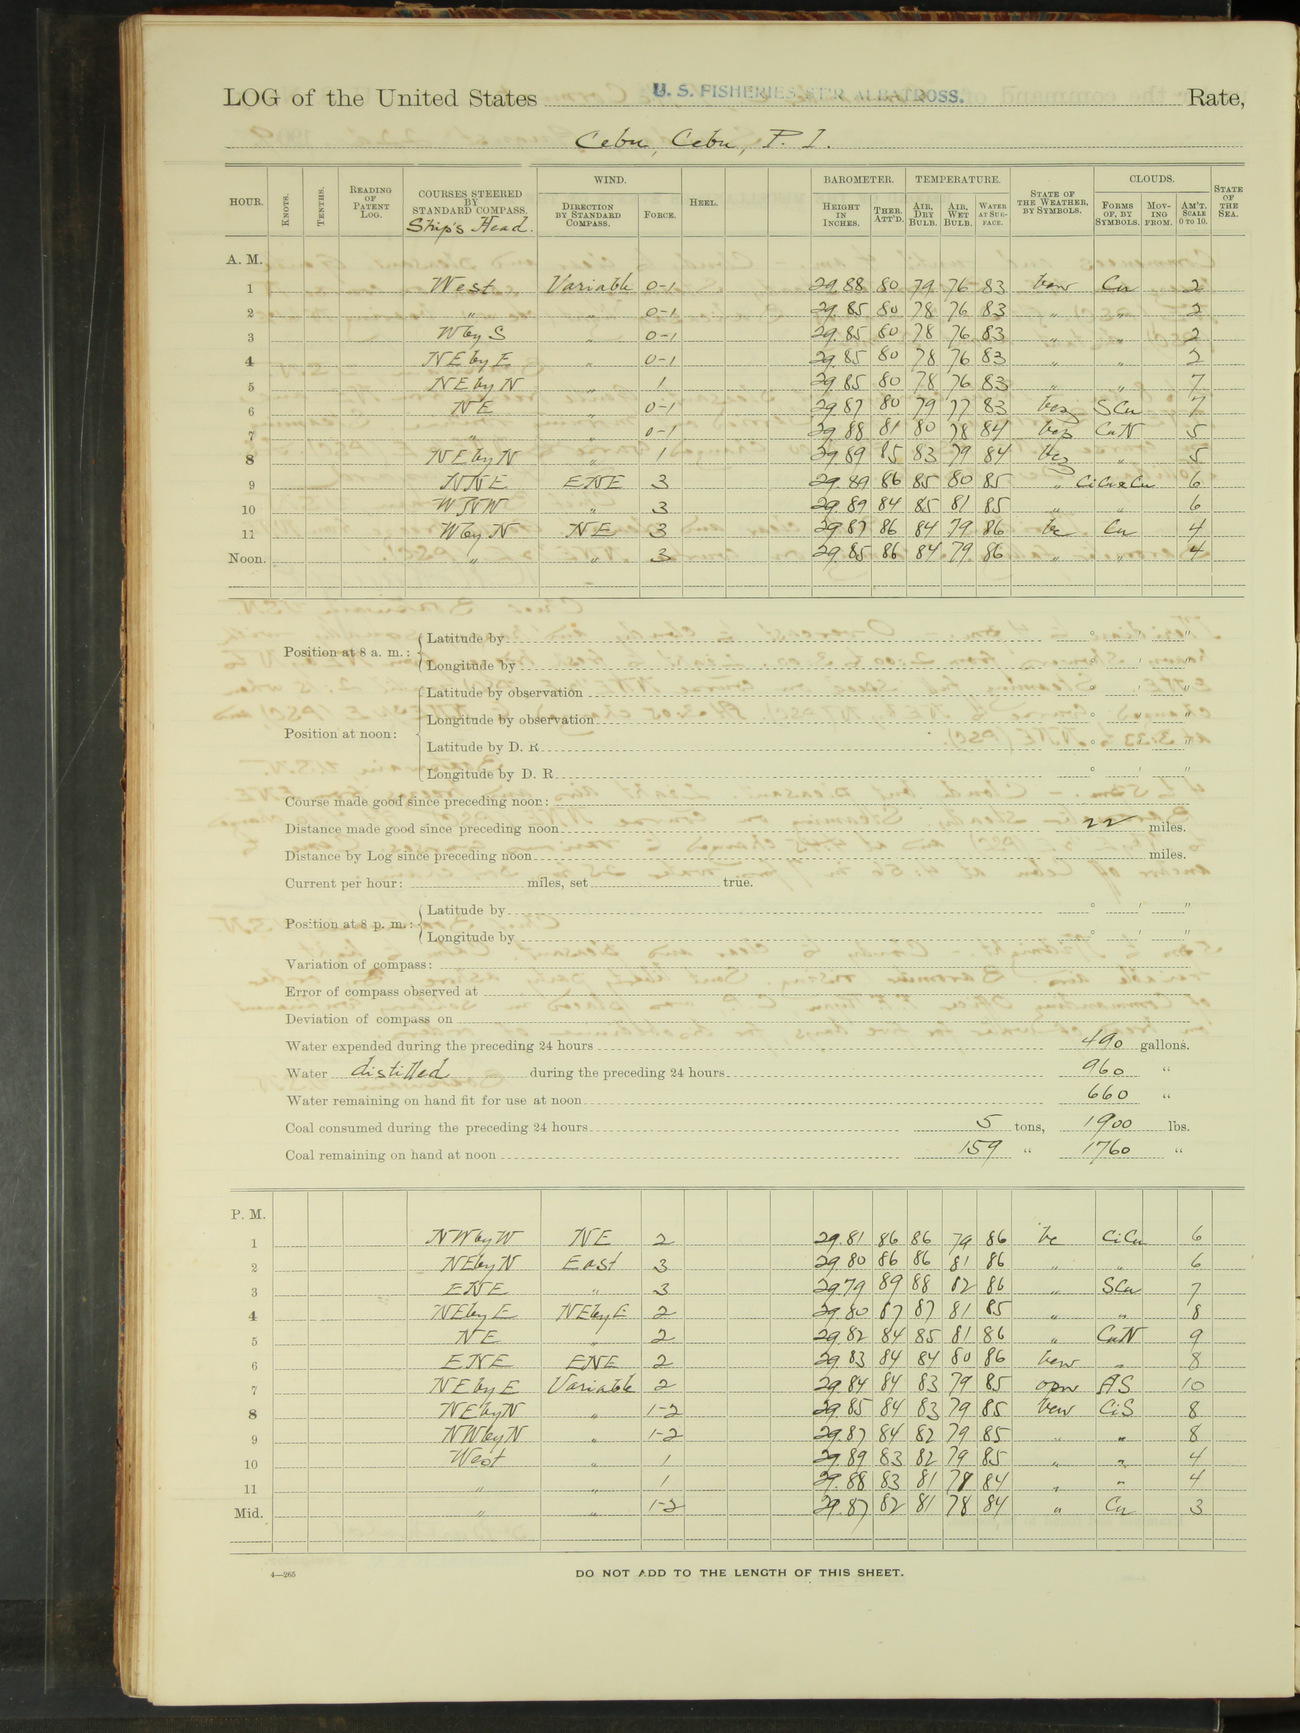 LOG of the United States U. S. FISHERIES STR ALBATROSS. Rate,
Cebu, Cebu, P. I.
HOUR. KNOTS. TENTHS. READING OF PATENT LOG. COURSES STEERED BY STANDARD COMPASS. Ship's Head. WIND. DIRECTION BY STANDARD COMPASS. FORCE. HEEL. BAROMETER. HEIGHT IN INCHES. THER. ATT'D. TEMPERATURE. AIR, DRY BULB. AIR, WET BULB. WATER AT SURFACE. STATE OF THE WEATHER, BY SYMBOLS. CLOUDS. FORMS OF, BY SYMBOLS. MOVING FROM. AM'T. SCALE 0 TO 10. STATE OF THE SEA.
A. M.
1 West Variable 0-1 29.88 80 79 76 83 bcw Cu 2
2 " " 0-1 29.85 80 78 76 83 " " 2
3 WbyS " 0-1 29.85 80 78 76 83 " " 2
4 NEbyE " 0-1 29.85 80 78 76 83 " " 2
5 NEbyN " 1 29.85 80 78 76 83 " " 7
6 NE " 0-1 29.87 80 79 77 83 bcz SCu 7
7 " " 0-1 29.88 81 80 78 84 bcz CuN 5
8 NEbyN " 1 29.89 85 83 79 84 bcz " 5
9 NNE ENE 3 29.89 86 85 80 85 " CiCu&Cu 6
10 WNW " 3 29.89 84 85 81 85 " " 6
11 WbyN NE 3 29.87 86 84 79 86 bc Cu 4
Noon. " " 3 29.85 86 84 79 86 " " 4
Position at 8 a. m.: Latitude by ° ' "
Longitude by ° ' "
Position at noon: Latitude by observation ° ' "
Longitude by observation ° ' "
Latitude by D. R. ° ' "
Longitude by D. R. ° ' "
Course made good since preceding noon:
Distance made good since preceding noon 22 miles.
Distance by Log since preceding noon miles.
Current per hour: miles, set true.
Position at 8 p. m.: Latitude by ° ' "
Longitude by ° ' "
Variation of compass:
Error of compass observed at
Deviation of compass on
Water expended during the preceding 24 hours 490 gallons.
Water distilled during the preceding 24 hours 960 "
Water remaining on hand fit for use at noon 660 "
Coal consumed during the preceding 24 hours 5 tons, 1900 lbs.
Coal remaining on hand at noon 159 " 1760 "
P. M.
1 NWbyW NE 2 29.81 86 86 79 86 bc CiCu 6
2 NEbyN East 3 29.80 86 86 81 86 " " 6
3 ENE " 3 29.79 89 88 82 86 " SCu 7
4 NEbyE NEbyE 2 29.80 87 87 81 85 " " 8
5 NE " 2 29.82 84 85 81 86 " CuN 9
6 ENE ENE 2 29.83 84 84 80 86 bcw " 8
7 NEbyE Variable 2 29.84 84 83 79 85 opw AS 10
8 NEbyN " 1-2 29.85 84 83 79 85 bcw CiS 8
9 NWbyN " 1-2 29.87 84 82 79 85 " " 8
10 West " 1 29.89 83 82 79 85 " " 4
11 " " 1 29.88 83 81 78 84 " " 4
Mid. " " 1-2 29.87 82 81 78 84 " Cu 3
4—265
DO NOT ADD TO THE LENGTH OF THIS SHEET.